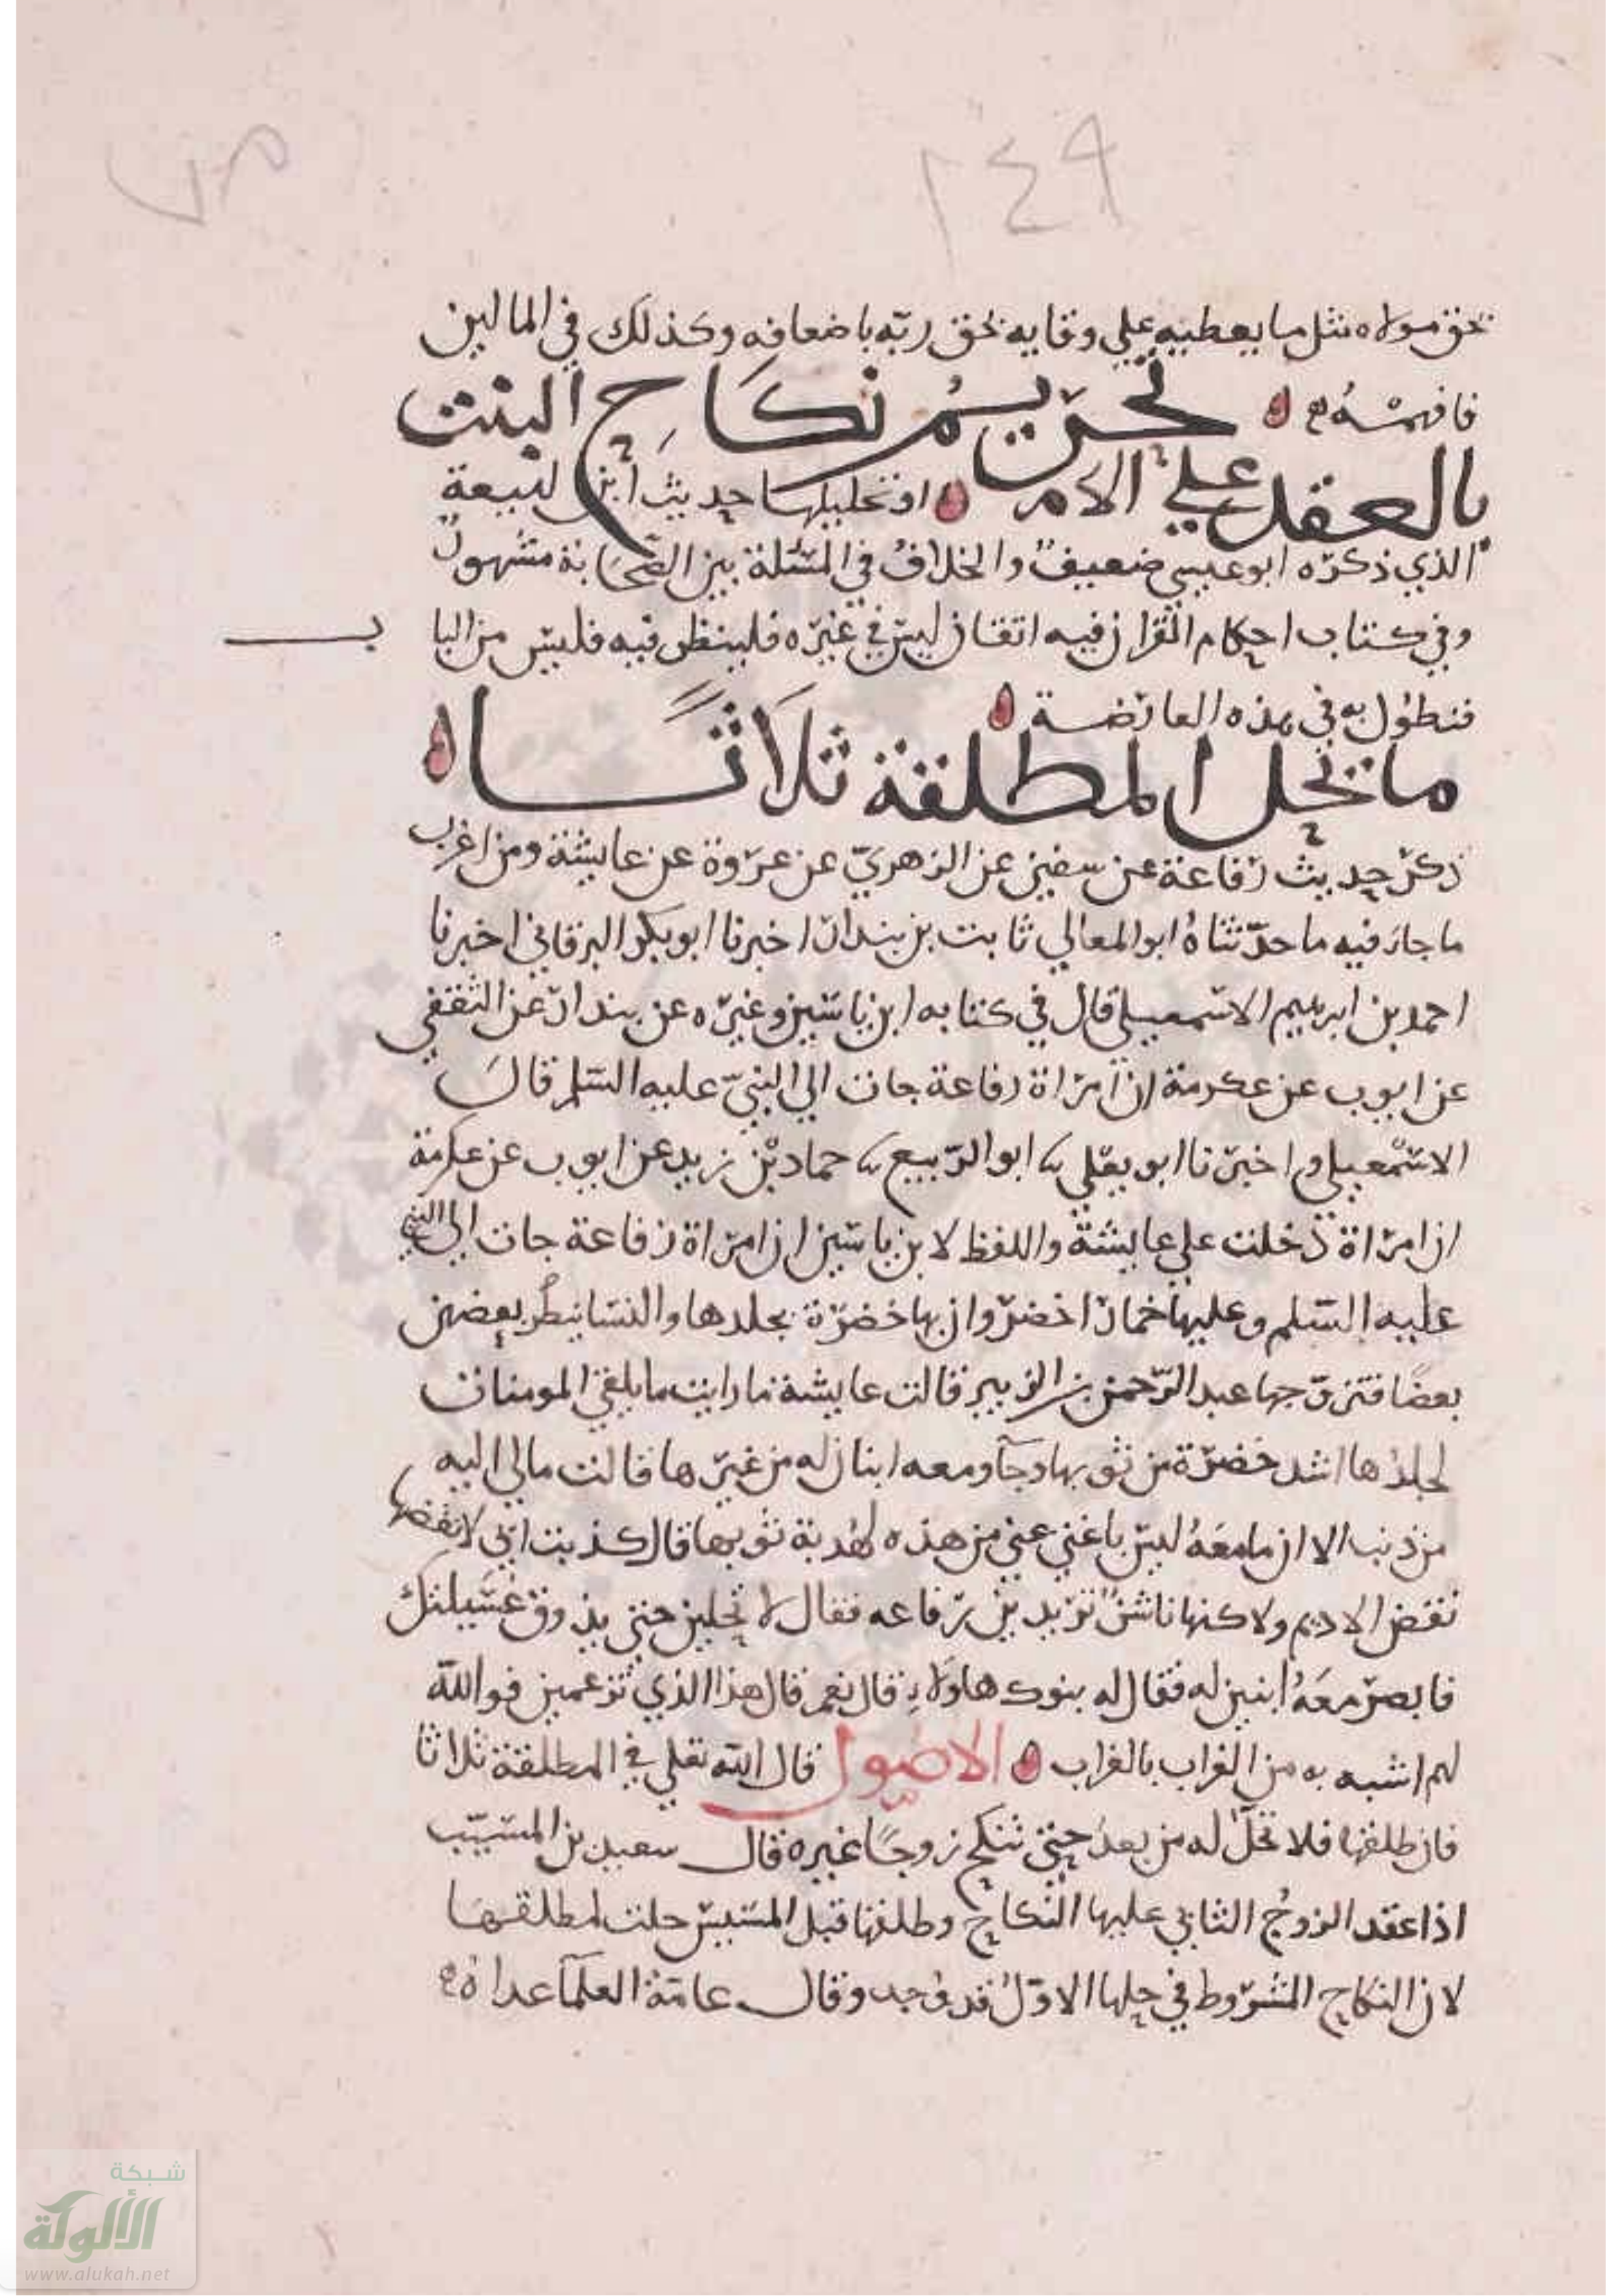 ٢٤٩
بحق مولاه مثل ما يعطيه علي وقايه بحق ربّه باضعافه وكذلك في المالين
فافهمْه تحرّيم نكاح البنت
بالعقد علي الام او تحليلها حديث ابن لهيعة
الذي ذكره ابو عيسي ضعيف والخلاف في المسئلة بين الصّحابة مشهور
وفي كتاب احكام القران فيه اتقان ليس في غيره فلينظر فيه فليس من البا ب
فنطول به في هذه العارضة
ما تحل المطلقة ثلاثًا
ذكر حديث رفاعة عن سفين عن الزهريّ عن عروة عن عايشة ومن اغرب
ما جاء فيه ما حدّثناهُ ابو المعالي ثابت بن بندار اخبرنا ابو بكر البرقاني اخبرنا
احمد بن ابرهيم الاسمعيلي قال في كتابه ابن ياسين وغيره عن بندار عن الثقفي
عن ايوب عن عكرمة ان امراة رفاعة جات الي النبيّ عليه السّلم قال
الاسمعيلي واخبرنا ابو يعلي نا ابو الرّبيع نا حماد بن زيد عن ايوب عن عكرمة
ان امراة دخلت علي عايشة واللفظ لابن ياسين ان امراة رفاعة جات الي النبي
عليه السّلم وعليها خمار اخضر وان بها خضرة بجلدها والنسا ينصر بعضهن
بعضًا فتزوّجها عبد الرّحمن بن الزبير قالت عايشة ما رايت ما يلقي المومنات
لجلدها اشد خضرة من ثوبها وجآ ومعه ابنان له من غيرها قالت مالي اليه
من ذنب الا ان ما معهُ ليس باغني عني من هذه لهدبة ثوبها قال كذبت اني لانفضها
نفض الاديم ولاكنها ناشز تريد بن رفاعه فقال لا تحلين حتي يذوق عُسَيلتك
فابصر معَهُ ابنين له فقال له بنوك هاولاء قال نعم قال هذا الذي تزعمين فوالله
لهم اشبه به من الغراب بالغراب الاصول قال الله تعلي في المطلقة ثلاثا
فان طلقها فلا تحلّ له من بعدُ حتي تنكح زوجًا غيره قال سعيد بن المسيّب
اذا عقد الزوجُ الثاني عليها النكاح وطلقها قبل المسيس حلت لمطلقها
لان النكاح المشروط في حلها الاوّل قد وجد وقال عامّة العلمآ عداه
شبكة
الألوكة
www.alukah.net